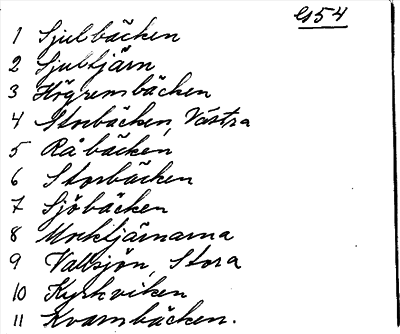 Gs 54
1 Sjulbäcken
2 Sjultjärn
3 Högrembäcken
4 Storbäcken, Västra
5 Råbäcken
6 Storbäcken
7 Sjöbäcken
8 Morktjärnarna
9 Vallsjön, Stora
10 Kyrkviken
11 Kvarnbäcken.